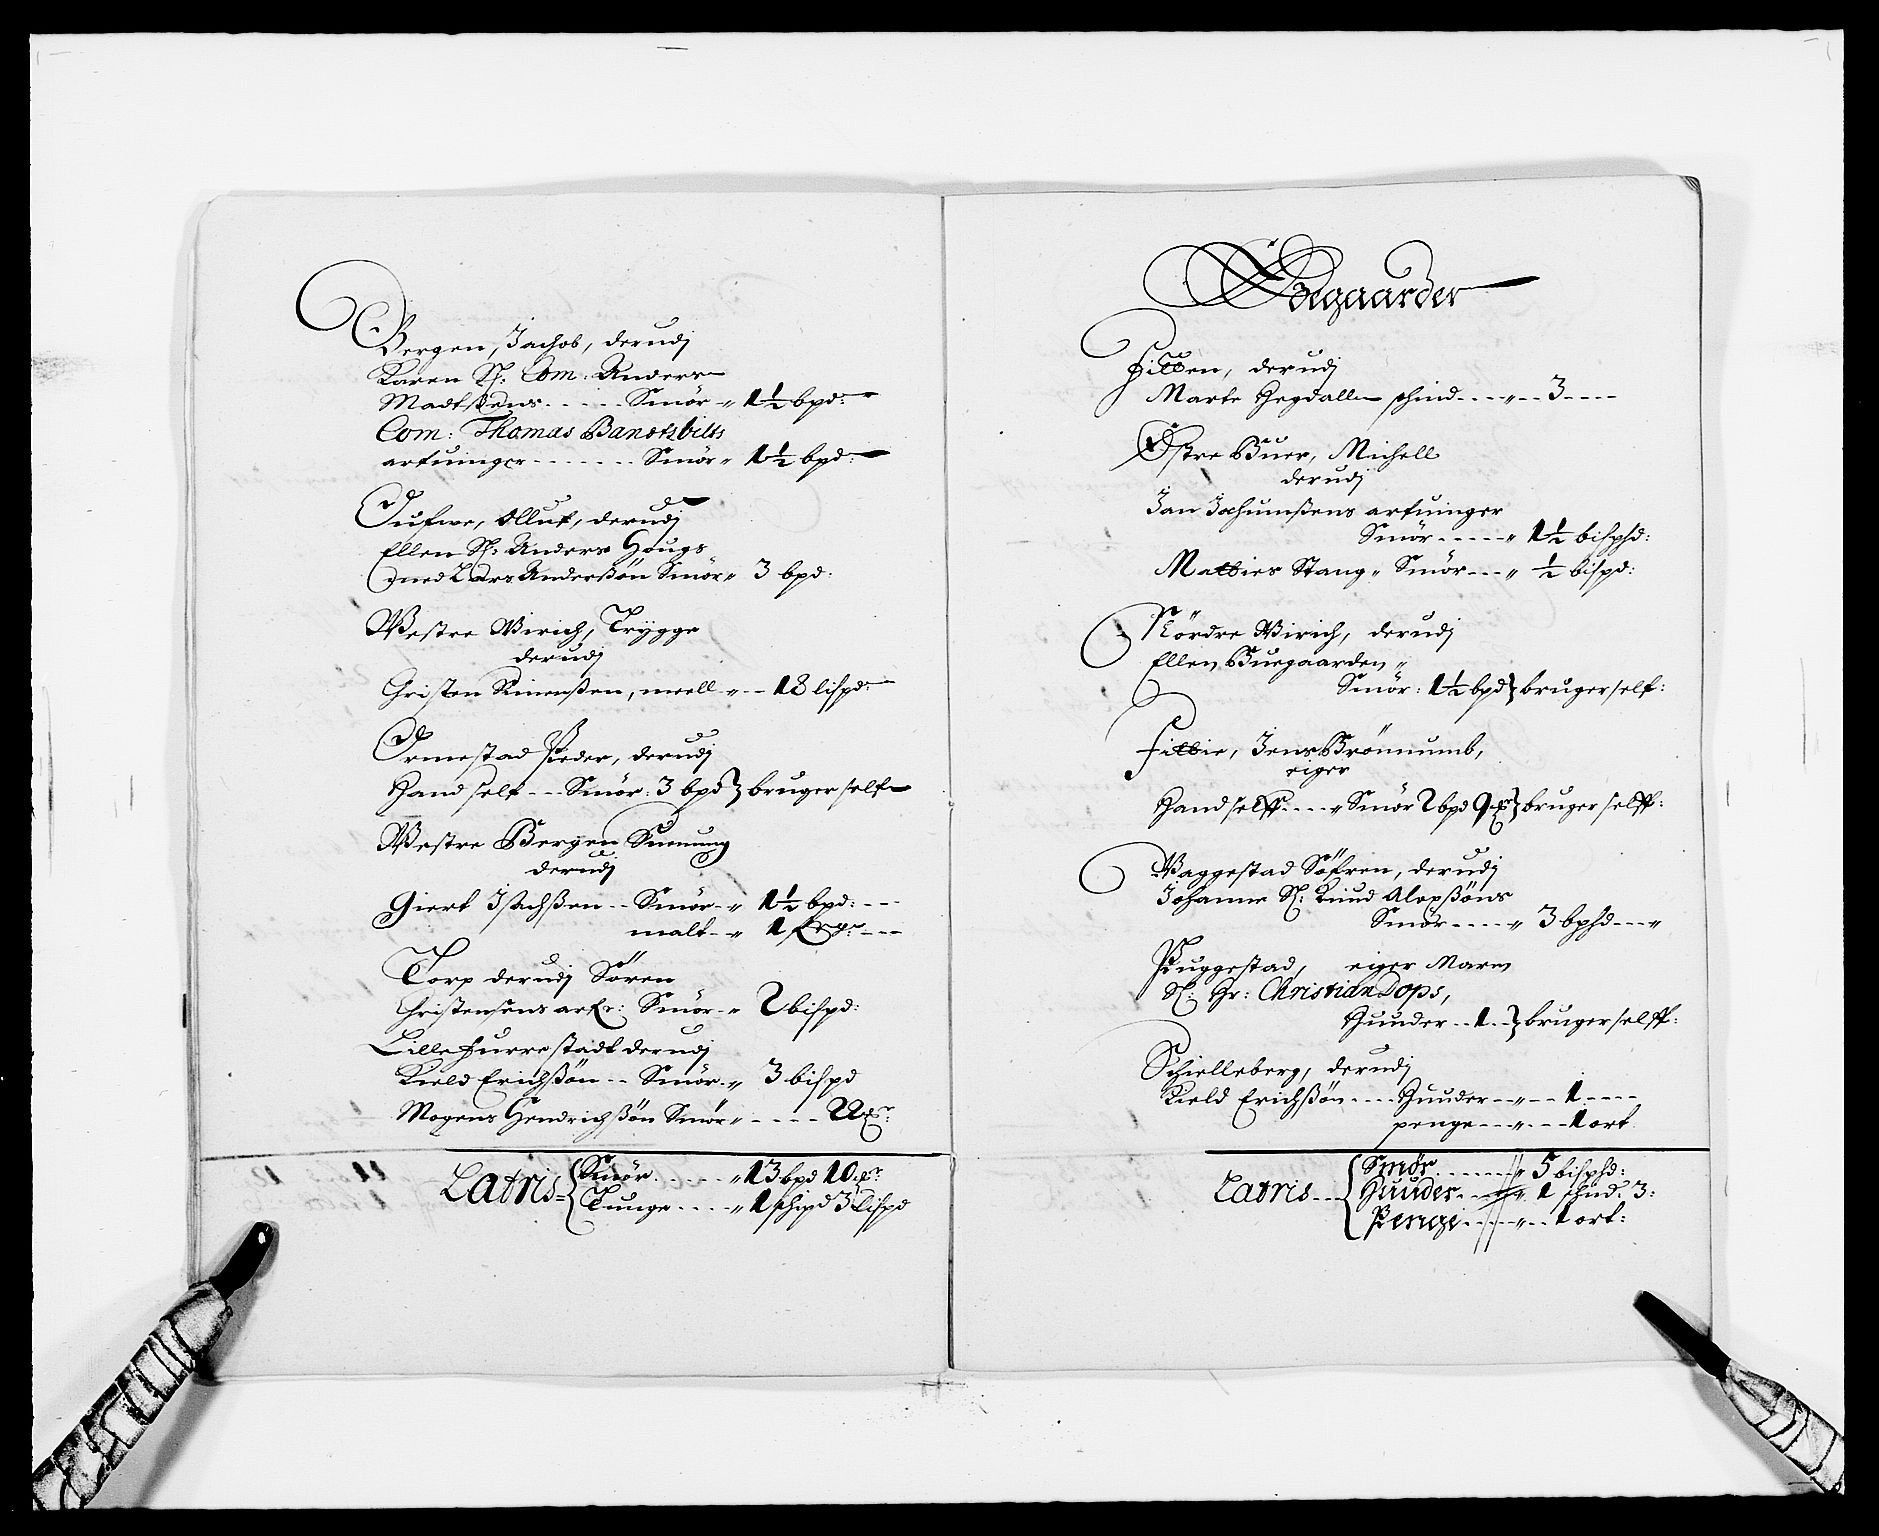 Bergen, Jachob, derudj
Karen Sl: Com: Anders
Madtßens ..... Smör „ 1½ bpd:
Com: Thomas Banotsbilts
arfuinger ....... Smör „ 1½ bpd:
Oufwe, Olluf, derudj
Ellen Sl: Anders Hougs
med Lars Anderßön Smör „ 3 bpd:
Westre Wirich, Trÿgge
derudj
Christen ..., meell „ -- 18 lispd:
Ormestad Peder, derudj
Hand self --- Smör: 3 bpd } bruger self
Westre Bergen Suenung
derudj
Giert Isachßen -- Smör -„ 1½ bpd: ---
malt -- „ 1 ---
Torp derudj Sören
Christensens arfr: Smör -„ 2 bispd:
Lille Furrestadt derudj
Kield Erichßön -- Smör -„ 3 bispd
Mogens Hendrichßön Smör „ ---- 22
Latris { Smör ...... „ 13 bpd 10
Tunge ..... „ 1 schipd 3 lispd
Ødegaarder
Filben, derudj
Marte Hegdallen schind ---- „ -- 3 ----
Østre Buer, Michell
derudj
Jan Jochumßens arfuinger
Smör ----- „ 1½ bisphd:
Mathies Stang „ Smör --- „ ½ bispd:
Nördre Wirich, derudj
Ellen Buegaarden „
Smör: 1½ bpd } bruger self:
Filbie, Jens Brönnumb,
eiger
Hand selff ---- „ Smör 2 bpd 9 } bruger selff:
Waggestad Söfren, derudj
Johanne Sl: Knud Alopßöns
Smör ---- „ 3 bphd --- „
Puggestad, eiger Maren
Sl: Hr: Christian Dops,
Huuder -- 1 -- } bruger selff:
Schielleberg, derudj
Kield Erichßön ---- Huuder --- „ -- 1 ----
penge --- „ --- 1 ort
Latris --- { Smör ....... „ 5 bisphd:
Huuder ---- „ 1 schnd: 3:
Penge ----- „ -- 1 ort: